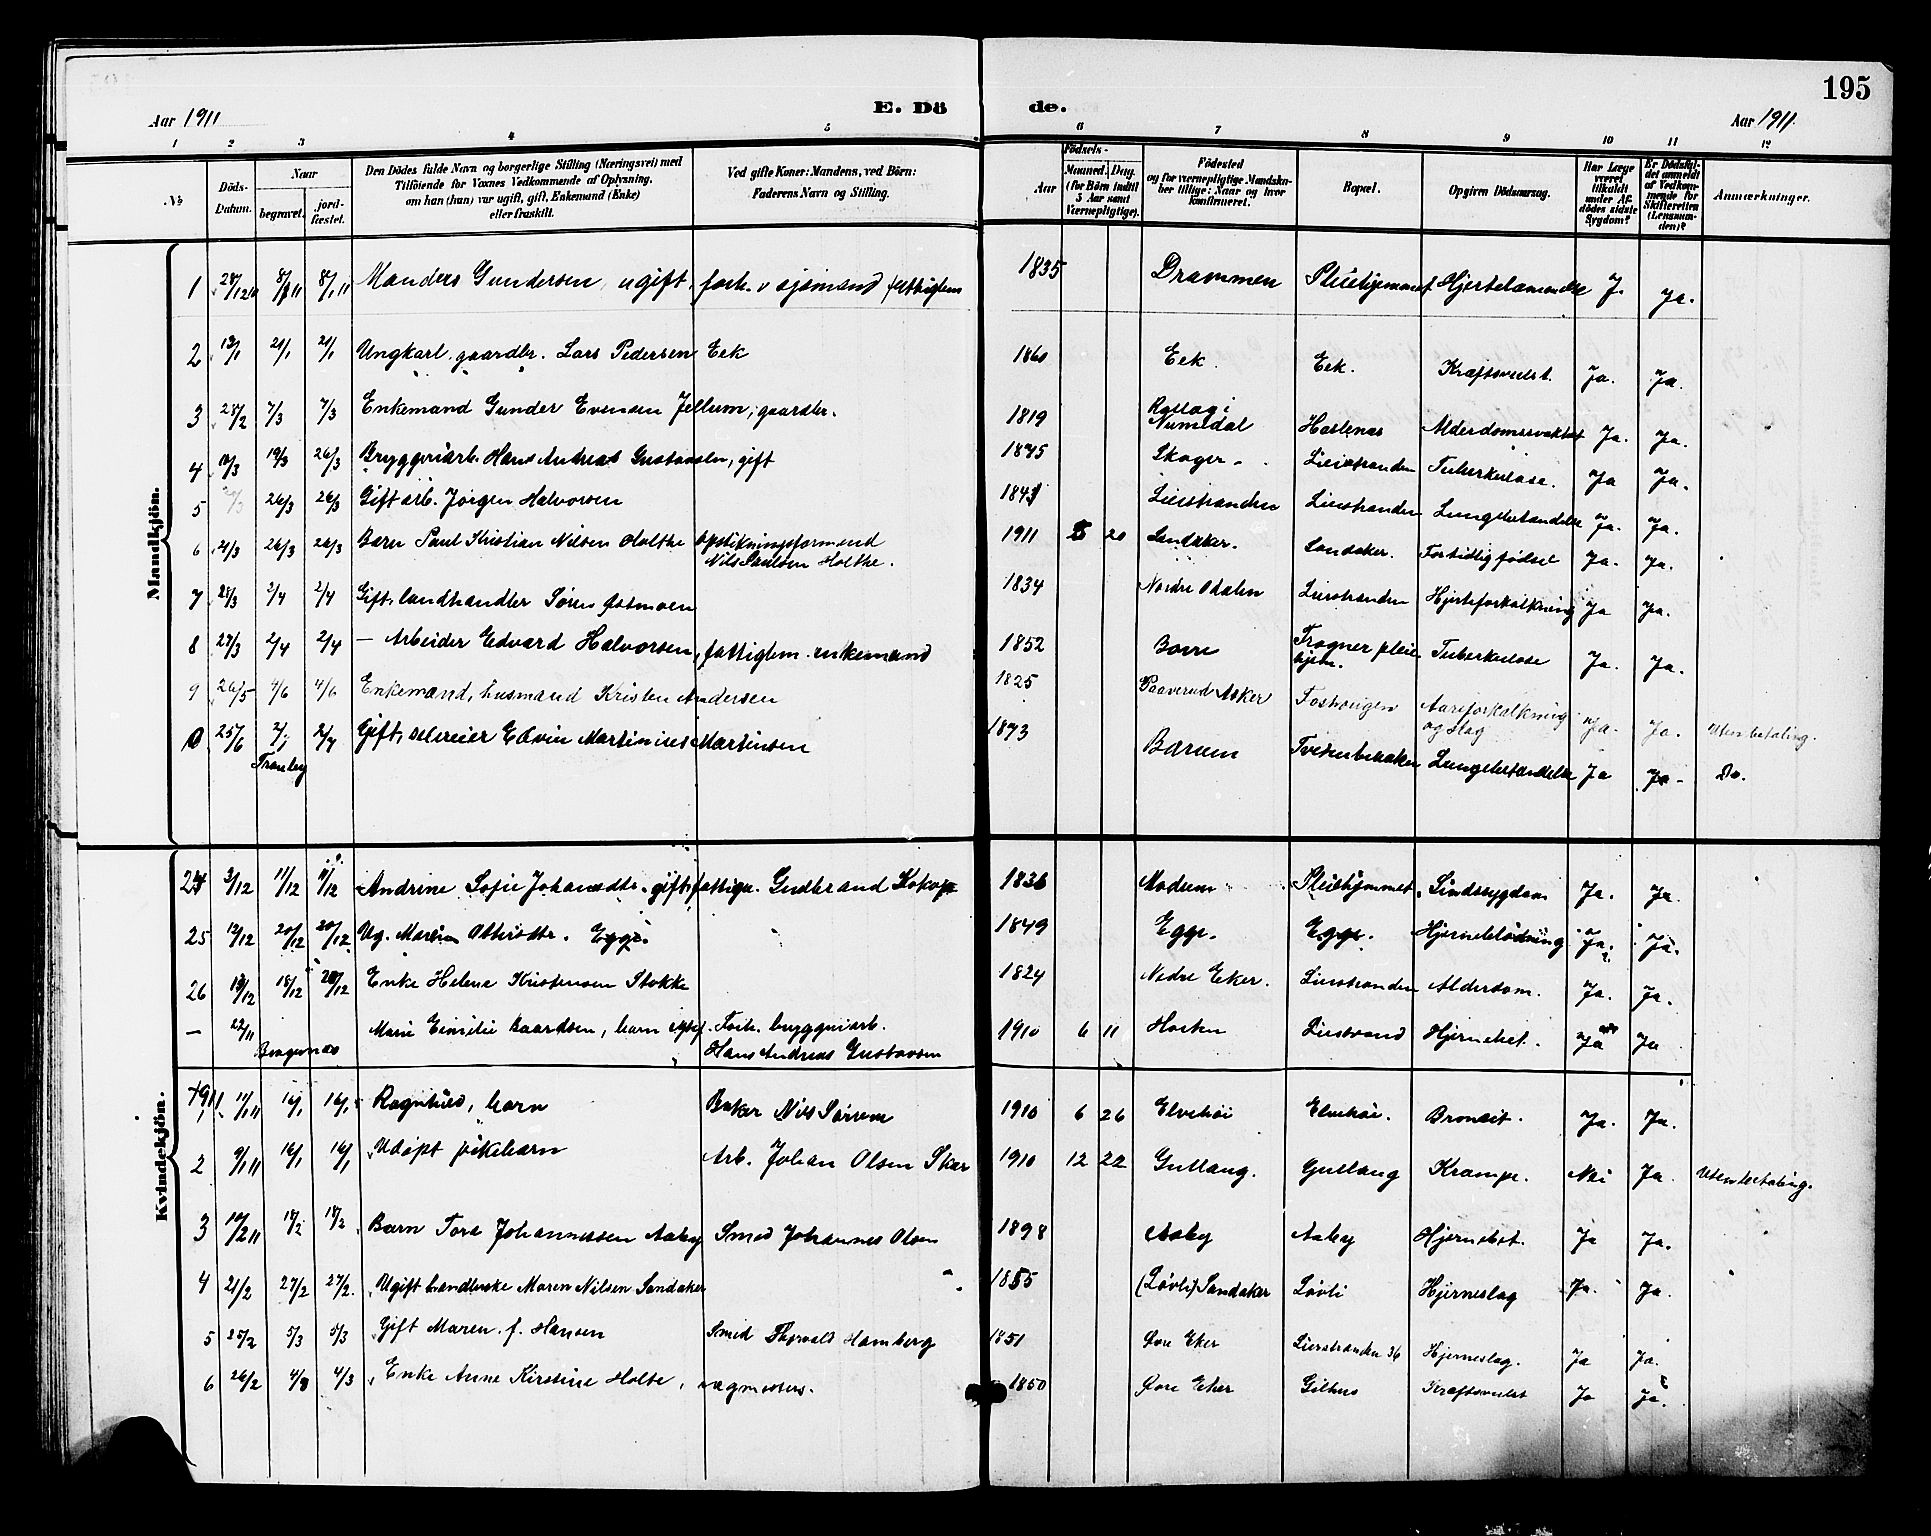 195
Aar 1911
E. Dö
de.
Aar 1911.
1 2 3 4 5 6 7 8 9 10 11 12
No
Döds-
Datum.
Naar
begravet.
jord-
fæstet.
Den Dödes fulde Navn og borgerlige Stilling (Næringsvei) med
Tilföiende for Voxnes Vedkommende af Oplysning,
om han (hun) var ugift, gift, Enkemand (Enke)
eller fraskilt.
Ved gifte Koner: Mandens, ved Börn:
Faderens Navn og Stilling.
Födsels-
Aar
Maaned. Dag.
(for Börn indtil
5 Aar samt
Værnepligtige).
Födested
og for værnepligtige Mandska-
ber tillige: Naar og hvor
konfirmeret.
Bopæl.
Opgiven Dödsaarsag.
Har Læge
været
tilkaldt
under Af-
dödes sidste
Sygdom?
Er Dödsfal-
det anmeldt
af Vedkom-
mende for
Skifteretten
(Lensman-
den)?
Anmærkninger.
Mandkjön.
1 28/12 8/1 11 8/1 11 Manders Gundersen, ugift, forh. v sjömand fattiglem 1835 Drammen Pleiehjemmet Hjertelammelse J. Ja.
2 13/1 21/1 21/1 Ungkarl, gaardbr. Lars Pedersen Eek 1860 Eek. Eek. Kræftsvulst. Ja. Ja.
3 28/2 7/3 7/3 Enkemand Gunder Evensen Jellum, gaardbr. 1819 Rollag i
Numedal Haslenas Alderdomssvakhet Ja. Ja.
4 12/3 19/3 26/3 Bryggeriarb. Hans Andreas Gustavsen, gift 1875 Skoger. Lierstranden Tuberkulose. Ja Ja.
5 26/3 26/3 Gift arb. Jörgen Halvorsen 1841 Lierstranden Lierstranden Lungebetændelse Ja. Ja.
6 21/3 26/3 26/3 Barn Paul Kristian Nilsen Holthe Opstikningsformand
Nils Paulsen Holthe. 1911 20 Landaker. Landaker. Fortidlig födsel Ja. Ja.
7 28/3 2/4 2/4 Gift, landhandler Sören Östmoen 1834 Nordre Odalen Lierstranden Hjerteforkalkning Ja Ja.
8 27/3 2/4 2/4 – Arbeider Edvard Halvorsen, fattiglem. enkemand 1852 Borre Frogner pleie
hjem. Tuberkulose Ja. Ja.
9 26/5 4/6 4/6 Enkemand, husmand Kristen Andersen 1825 Paaverud Asker Foshougen Aareforkalkning
og Slag Ja. Ja. Uten betaling.
10 25/6 2/7 2/7 Gift, seleieier Edvin Martinius Martinsen 1873 Bærum Tveitenbraaken Lungebetændelse Ja Ja- Do.
Tranby
Kvindekjön.
24 3/12 11/12 11/12 Andrine Sofie Johansdtr. gift, fattigu. Gudbrand Kokop 1836 Modum Pleiehjemmet Sindssygdom Ja. Ja.
25 12/12 20/12 20/12 Ug. Maren Ottersdtr. Egge. 1849 Egge. Egge. Hjerneblödning Ja. Ja.
26 13/12 18/12 20/12 Enke Helene Kristensen Stokke 1824 Nedre Eker. Lierstranden Alderdom. Ja. Ja.
– 22/11 Marie Emilie Baardsen, barn Forh. bryggeriarb.
Bragernæs Hans Andreas Gustavsen 1910 6 11 Horten Lierstrand Hjernebet. Ja Ja
1911
1 11/1 11 16/1 16/1 Ragnhild, barn Baker Nils Sörum 1910 6 26 Elvehöi Elvehöi. Bronkit. Ja. Ja.
2 9/1 11 16/1 16/1 Udöpt pikebarn Arb. Johan Olsen Skar 1910 12 22 Gullaug. Gullaug Krampe. Nei Ja. Uten betaling.
3 12/2 11 18/2 18/2 Barn Tora Johannessen Aaby Smed Johannes Olsen 1898 Aaby Aaby Hjernebet. Ja Ja.
4 21/2 27/2 27/2. Ugift handlerske Maren Nilsen Landaker 1855 (Lövli) Landaker Lövli Hjerneslag Ja. Ja.
5 25/2 5/3 5/3 Gift Maren f. Hansen Smed Thorvald Hamberg 1851 Övre Eker Lierstranden 36 Hjerneslag. Ja Ja.
6 26/2 4/3 4/3 Enke Anne Kirstine Holte, vagmesters. 1850 Övre Eker Gilhus Kræftsvulst Ja Ja.